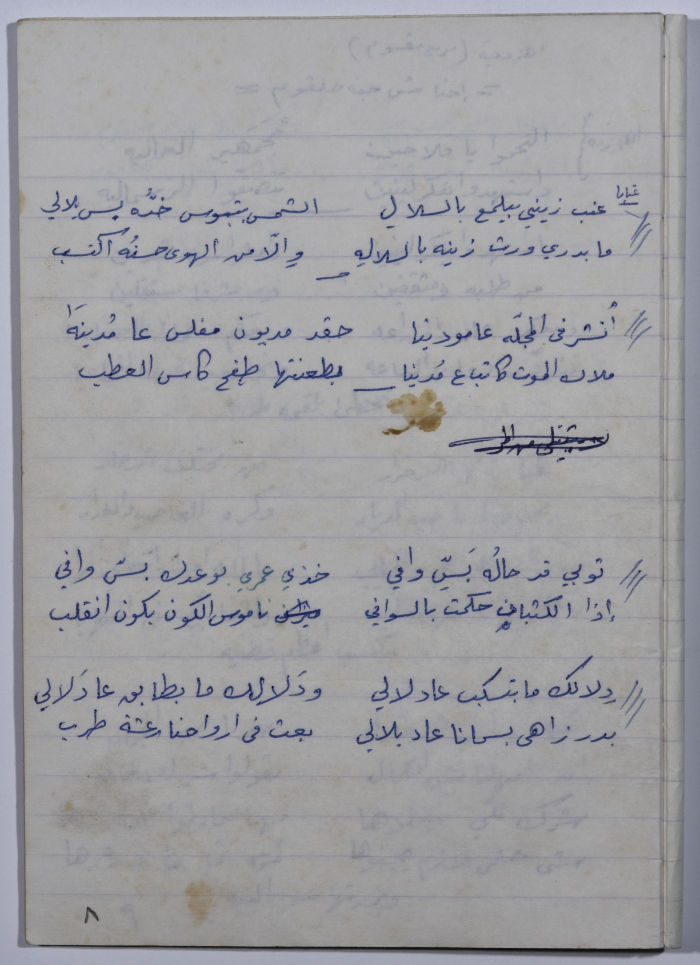 عتابا
عنب زيني بيلمع بالسلال الشمس بتبوس خدّه بس يلالي
ما بدري ورث زينه بالسلاله وإلّا من الهوى حسنُه اكتسب
أُنشر في المجلّه عامودينا حقد مديون مفلس عا مُدينَا
ملاك الموت كاتباع مُدينا بطعنتها طفح كاس العطب
توبي قد حاله بَسِّ وافي خذي عمري بوعدك بسّ وافي
إذا الكثبان حكمت بالسوافي ناموس الكون بكون انقلب
دلالك ما بتسكب عادلالي ودَلالك ما بطابق عا دَلالي
بدر زاهي بسمانا عاد يلالي بعث في ارواحنا رعشة طرب
٨